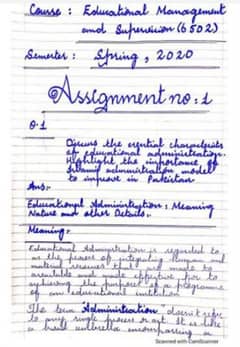 Course : Educational Management
and Supervision (6502)
Semester : Spring, 2020
Assignment no : 1
Q.1
Discuss the essential characteristics
of educational administration.
Highlight the importance of
Islamic administration model
to improve in Pakistan
Ans:-
Educational Administration : Meaning
Nature and other Details:-
Meaning:-
Educational Administration is regarded
as the process of integrating human and
material resources that are made
available and made effective for
achieving the purposes of a programme
of an educational institution
The term Administration doesn't refer
to any single process or act. It is like
a broad umbrella encompassing a
Scanned with CamScanner